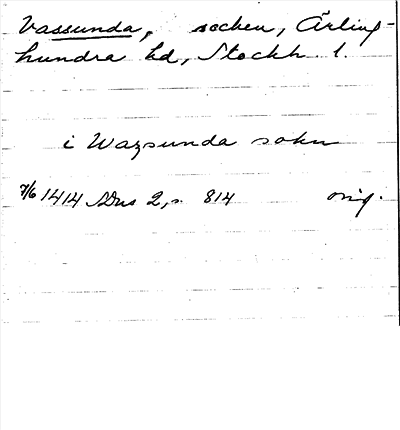 Vassunda, socken, Ärling-
hundra hd, Stockh. l.
i Wazsunda sokn
7/6 1414 SDns 2, s. 814 orig.